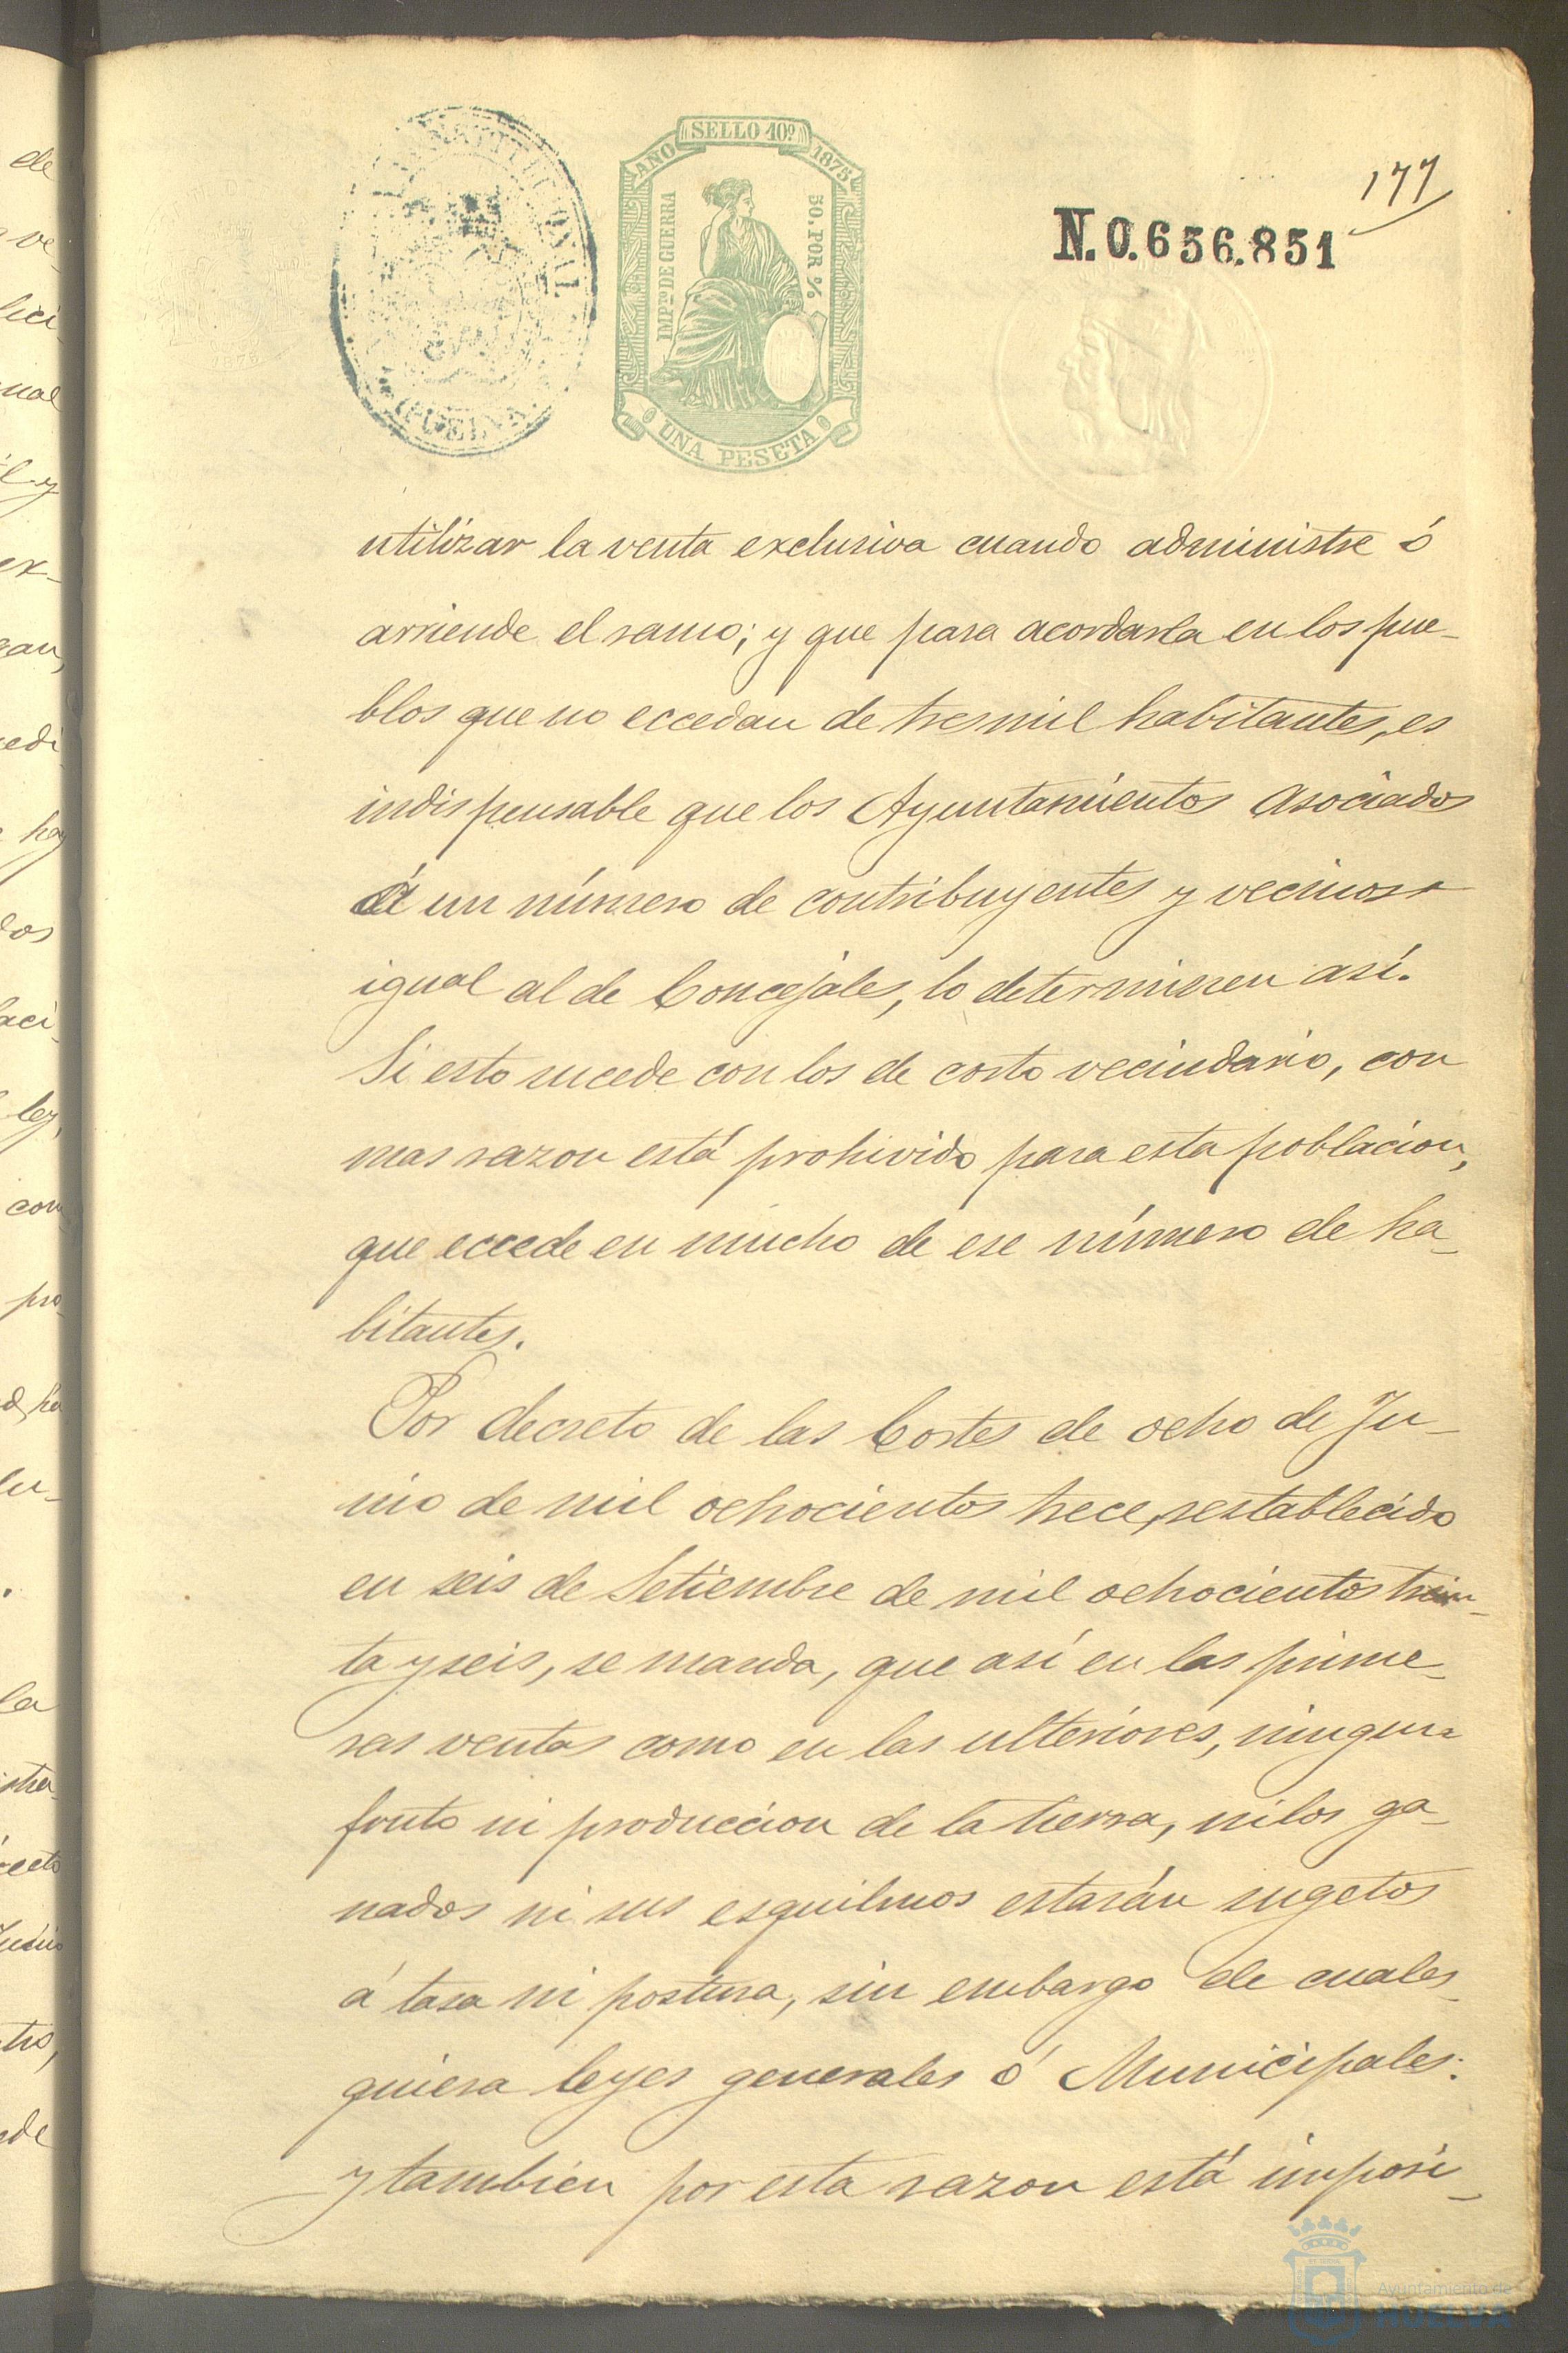 SELLO 10º
AÑO
1875
IMPTO DE GUERRA
50. POR %
UNA PESETA
HUELVA
177
N.0.656.851
utilizar la venta exclusiva cuando administre ó
arriende el ramo; y que para acordarla en los pue-
blos que no eccedan de tres mil habitantes, es
indispensable que los Ayuntamientos asociados
á un número de contribuyentes y vecinos
igual al de Concejales, lo determinen así.
Si esto sucede con los de corto vecindario, con
mas razon está prohivido para esta poblacion,
que eccede en mucho de ese número de ha-
bitantes.
Por decreto de las Cortes de ocho de Ju-
nio de mil ochocientos trece, restablecido
en seis de Setiembre de mil ochocientos trein-
ta y seis, se manda, que así en las prime-
ras ventas como en las ulteriores, ningun
fruto ni produccion de la tierra, ni los ga-
nados ni sus esquilmos estarán sugetos
á tasa ni postura, sin embargo de cuales-
quiera leyes generales ó Municipales:
y tambien por esta razon está imposi-
Ayuntamiento de
HUELVA